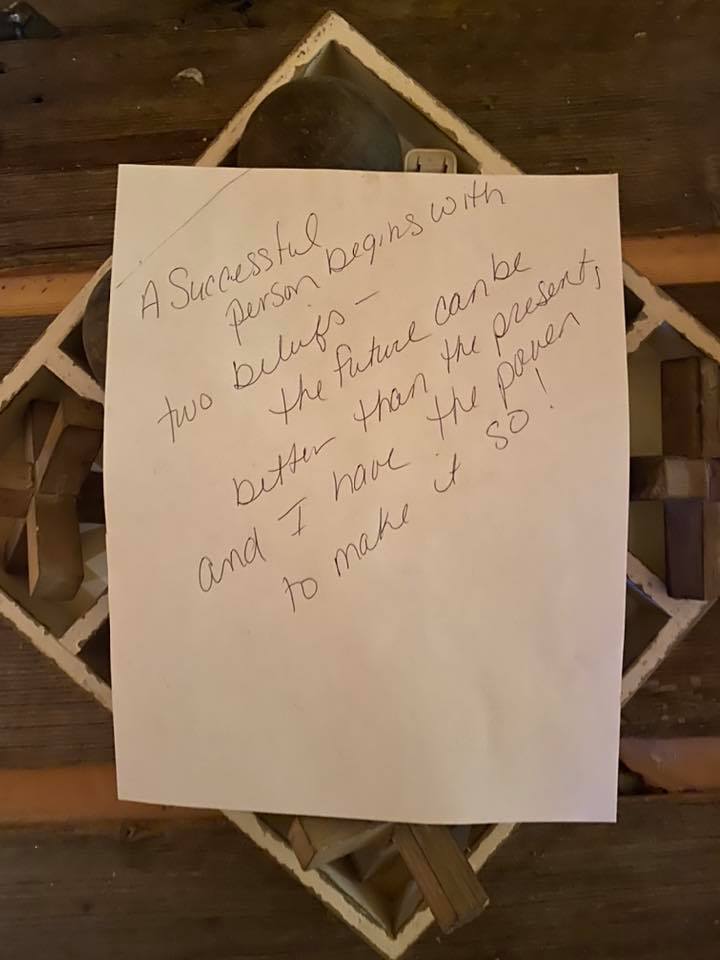 A Successful
person begins with
two beliefs -
the future can be
better than the present,
and I have the power
to make it so!